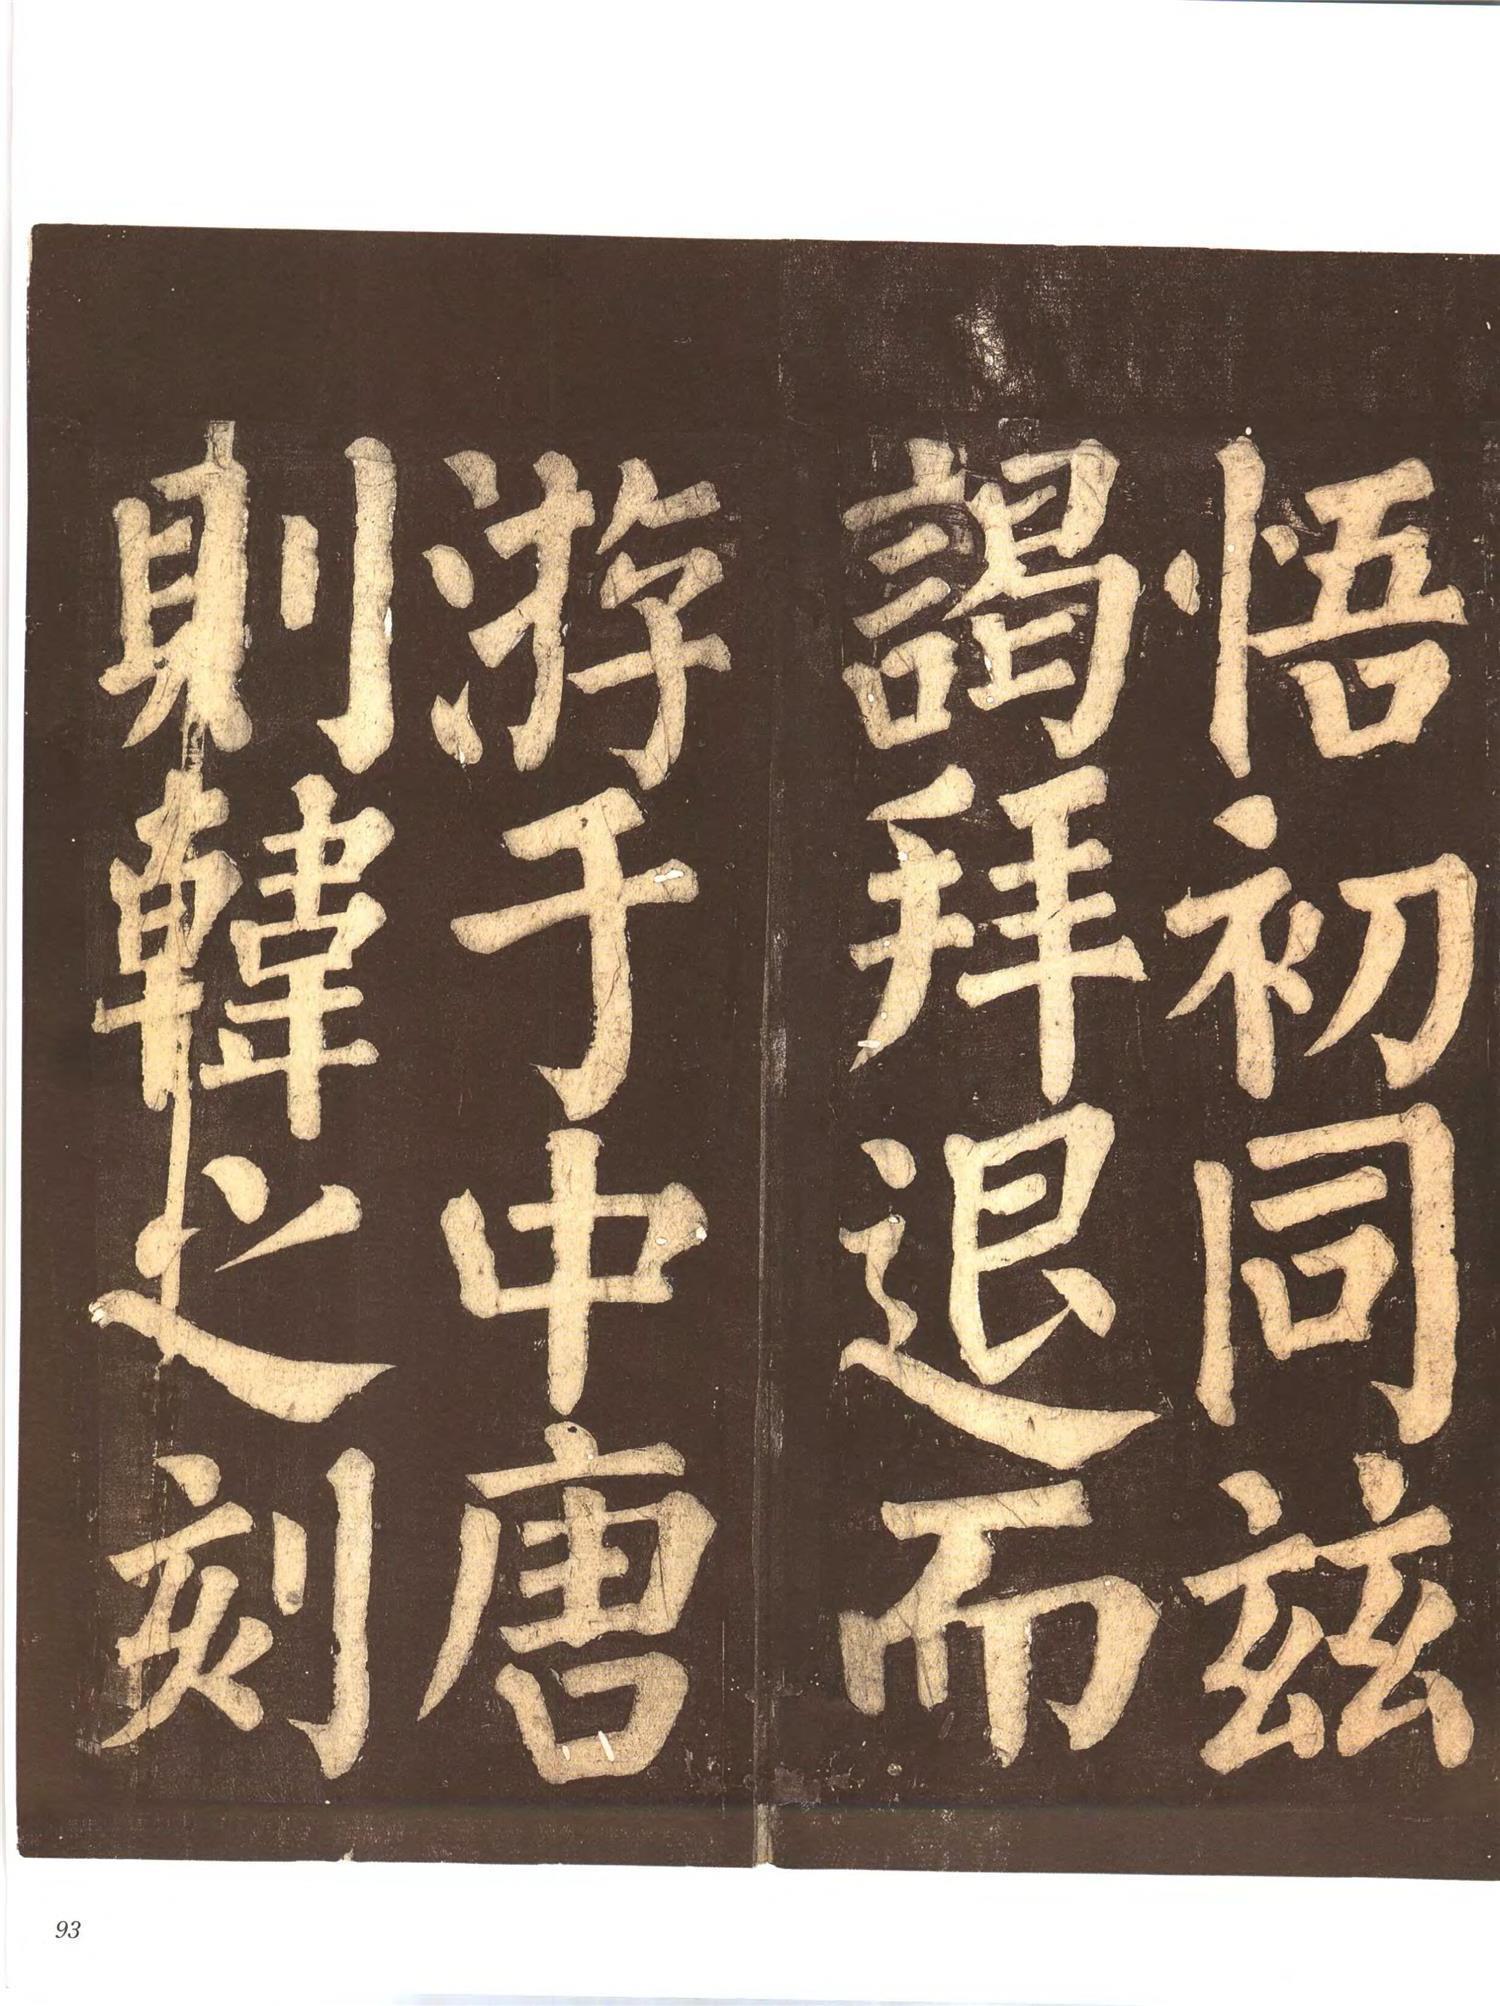 悟初同兹
謁拜退而
游于中唐
則韓之刻
93